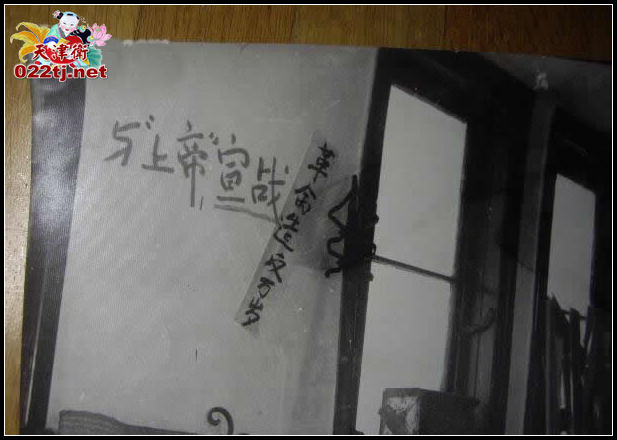 天津衛
022tj.net
与“上帝”宣战
革命造反万岁